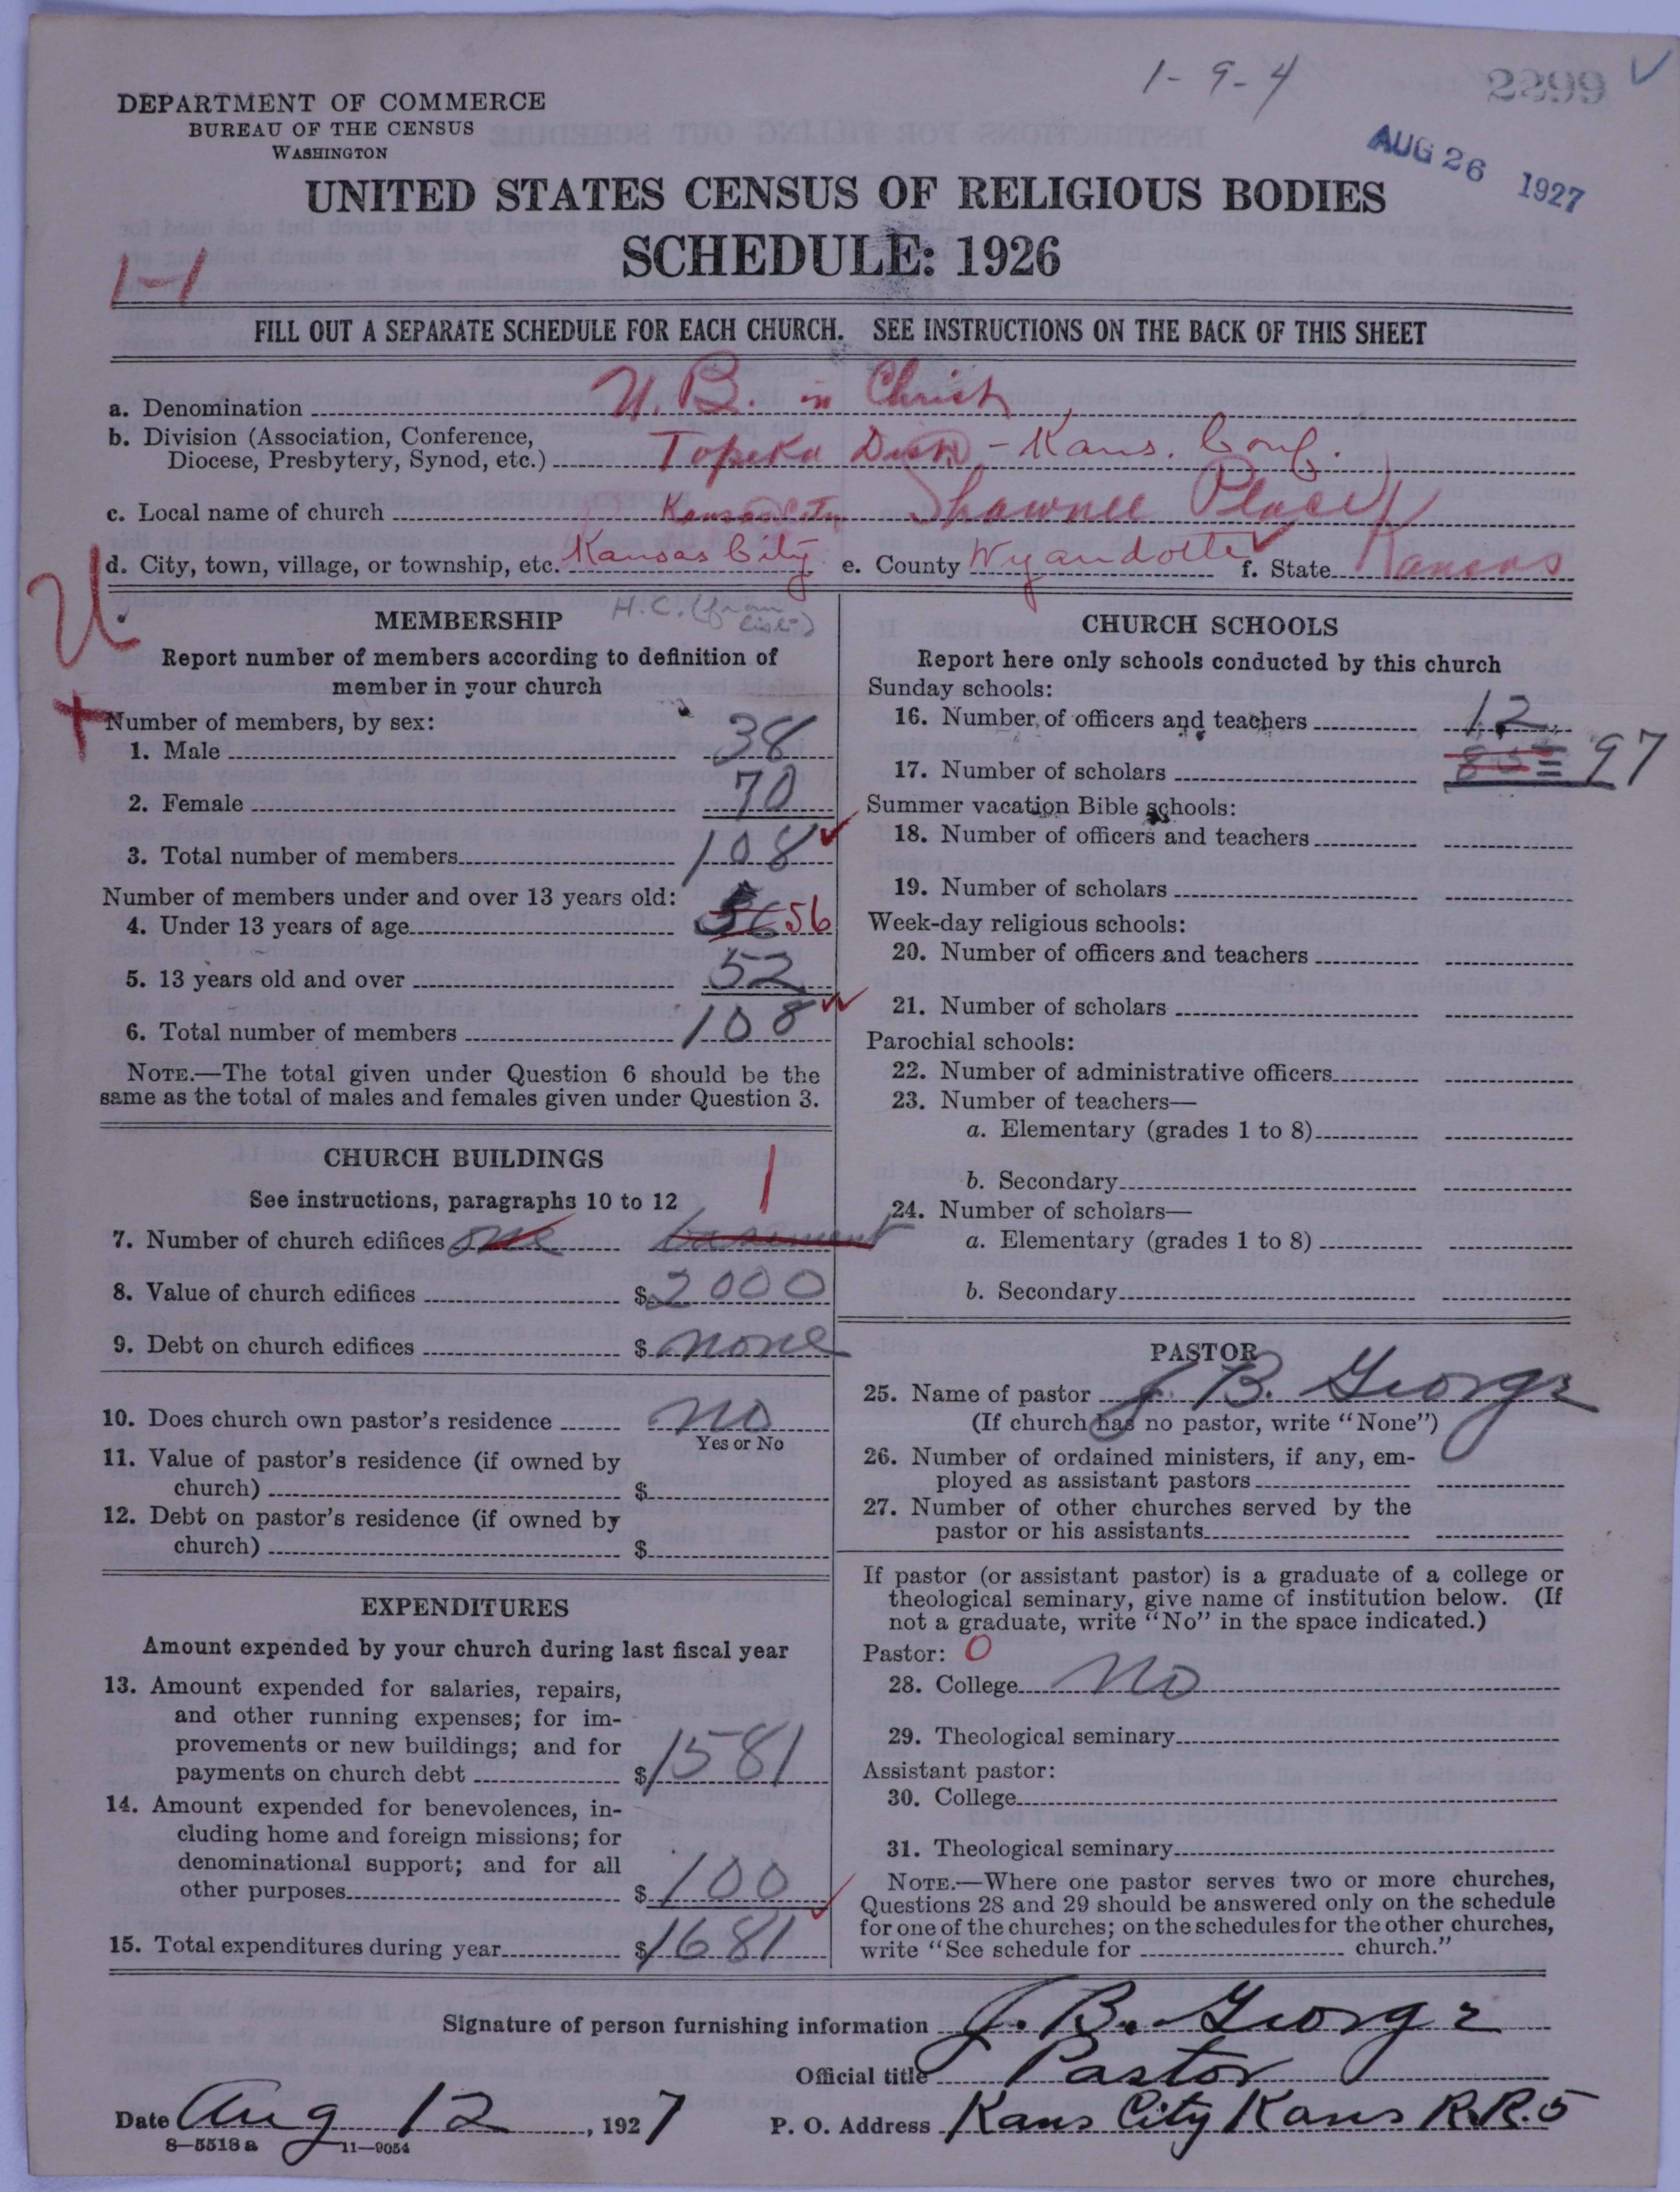 1-9-4
2299
DEPARTMENT OF COMMERCE
BUREAU OF THE CENSUS
WASHINGTON
AUG 26 1927
UNITED STATES CENSUS OF RELIGIOUS BODIES
SCHEDULE: 1926
FILL OUT A SEPARATE SCHEDULE FOR EACH CHURCH. SEE INSTRUCTIONS ON THE BACK OF THIS SHEET
a. Denomination U. B. in Christ
b. Division (Association, Conference,
Diocese, Presbytery, Synod, etc.) Topeka Dist - Kans. Conf.
c. Local name of church Kansas City Shawnee Place
d. City, town, village, or township, etc. Kansas City e. County Wyandotte f. State Kansas
U
MEMBERSHIP H.C. (from list)
Report number of members according to definition of
member in your church
Number of members, by sex:
1. Male 38
2. Female 70
3. Total number of members 108
Number of members under and over 13 years old:
4. Under 13 years of age 56
5. 13 years old and over 52
6. Total number of members 108
NOTE.—The total given under Question 6 should be the
same as the total of males and females given under Question 3.
CHURCH BUILDINGS
See instructions, paragraphs 10 to 12 1
7. Number of church edifices one basement
8. Value of church edifices $2000
9. Debt on church edifices $ none
10. Does church own pastor's residence no
Yes or No
11. Value of pastor's residence (if owned by
church) $
12. Debt on pastor's residence (if owned by
church) $
EXPENDITURES
Amount expended by your church during last fiscal year
13. Amount expended for salaries, repairs,
and other running expenses; for im-
provements or new buildings; and for
payments on church debt $1581
14. Amount expended for benevolences, in-
cluding home and foreign missions; for
denominational support; and for all
other purposes $100
15. Total expenditures during year $1681
CHURCH SCHOOLS
Report here only schools conducted by this church
Sunday schools:
16. Number of officers and teachers 12
17. Number of scholars 97
Summer vacation Bible schools:
18. Number of officers and teachers
19. Number of scholars
Week-day religious schools:
20. Number of officers and teachers
21. Number of scholars
Parochial schools:
22. Number of administrative officers
23. Number of teachers—
a. Elementary (grades 1 to 8)
b. Secondary
24. Number of scholars—
a. Elementary (grades 1 to 8)
b. Secondary
PASTOR
25. Name of pastor J. B. George
(If church has no pastor, write "None")
26. Number of ordained ministers, if any, em-
ployed as assistant pastors
27. Number of other churches served by the
pastor or his assistants
If pastor (or assistant pastor) is a graduate of a college or
theological seminary, give name of institution below. (If
not a graduate, write "No" in the space indicated.)
Pastor: 0
28. College No
29. Theological seminary
Assistant pastor:
30. College
31. Theological seminary
NOTE.—Where one pastor serves two or more churches,
Questions 28 and 29 should be answered only on the schedule
for one of the churches; on the schedules for the other churches,
write "See schedule for church."
Signature of person furnishing information J. B. George
Official title Pastor
Date Aug 12, 1927 P. O. Address Kans City Kans R.R. 5
8—5518 a 11—9054